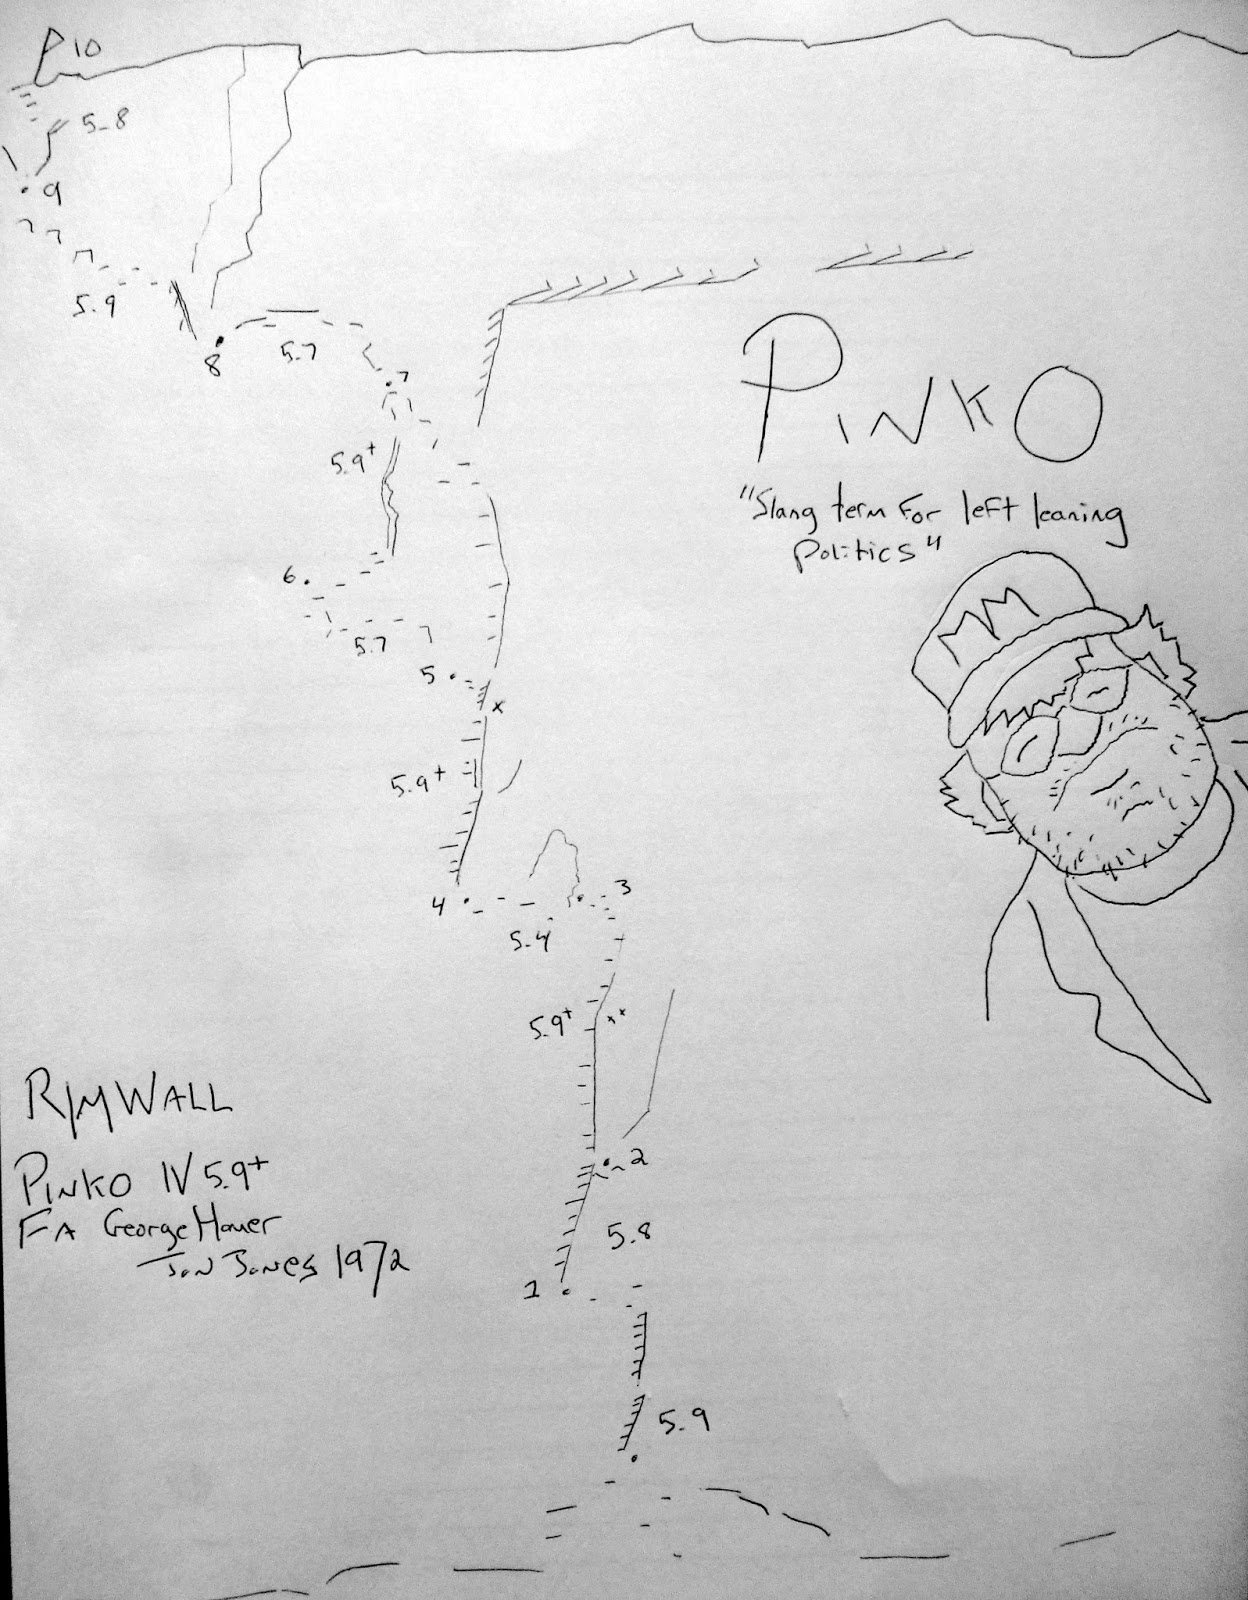 P10
5.8
9
5.9
8
5.7
7
5.9+
PINKO
"Slang term for left leaning
politics"
6
5.7
5
x
5.9+
4
3
5.4
5.9+
xx
RIMWALL
PINKO IV 5.9+
FA George Homer
Jon Jones 1972
2
5.8
1
5.9